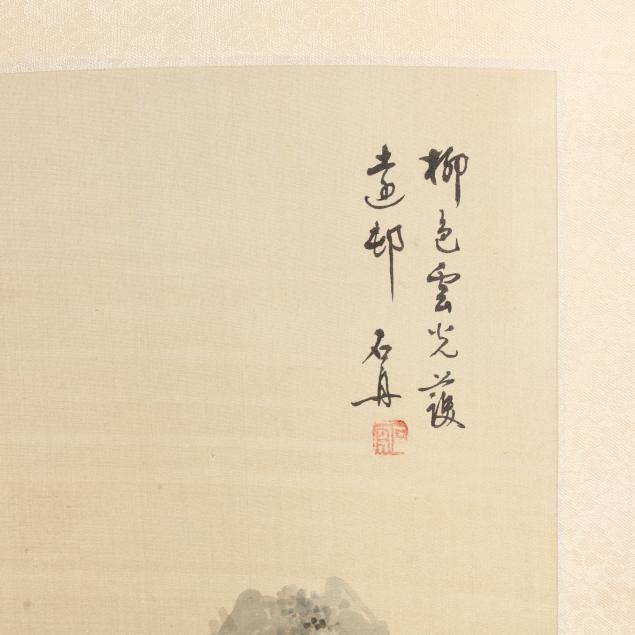 柳色雲光護
遠邨 石舟